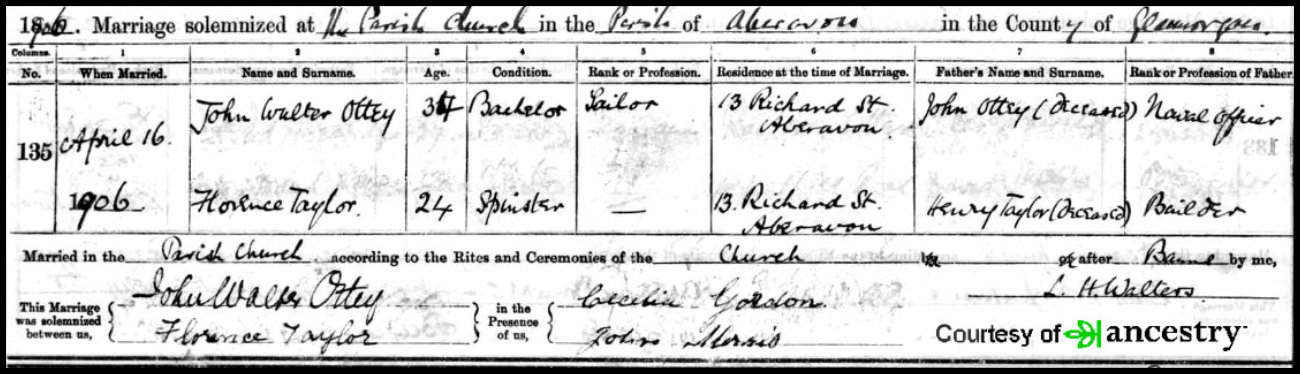 1906. Marriage solemnized at the Parish Church in the Parish of Aberavon in the County of Glamorgan.
Columns. 1 2 3 4 5 6 7 8
No. When Married. Name and Surname. Age. Condition. Rank or Profession. Residence at the time of Marriage. Father's Name and Surname. Rank or Profession of Father.
John Walter Ottey Bachelor Sailor 13 Richard St. John Ottey (deceased) Naval Officer
Aberavon.
135 April 16.
1906 Florence Taylor. 24 Spinster — 13. Richard St. Henry Taylor (deceased) Builder
Aberavon
Married in the Parish Church according to the Rites and Ceremonies of the Church by or after Banns by me,
John Walter Ottey Cecilia Gordon L. H. Walters.
This Marriage was solemnized between us, in the Presence of us,
Florence Taylor John
Courtesy of ancestry